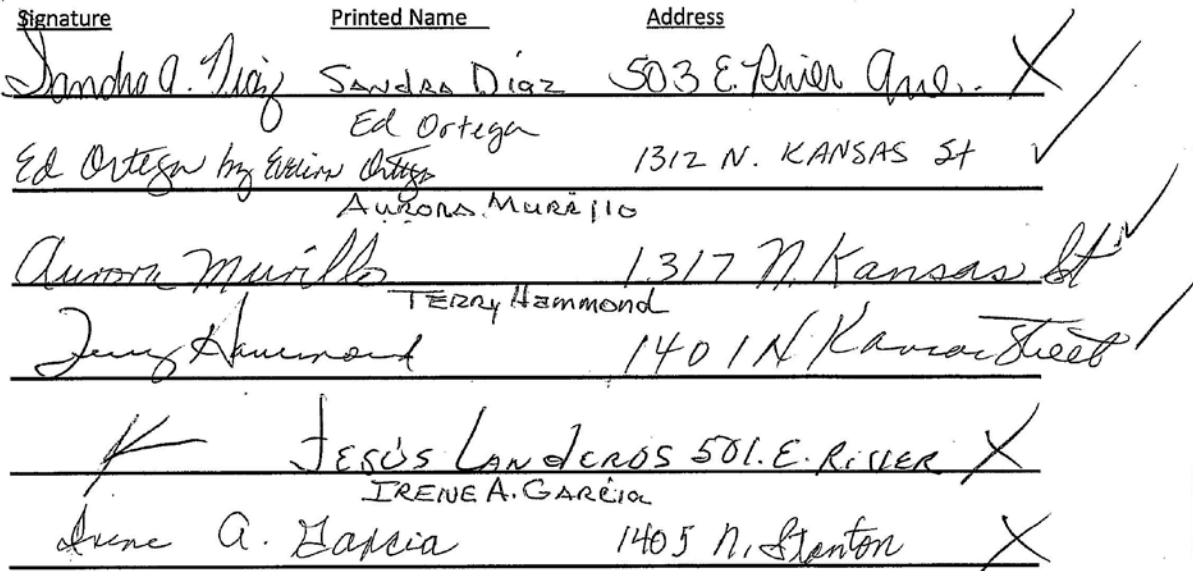 Signature Printed Name Address
Sandra A. Diaz Sandra Diaz 503 E. River Ave. X
Ed Ortega
Ed Ortega by Evelina Ortega 1312 N. KANSAS St ✓
Aurora Murillo
Aurora Murillo 1317 N. Kansas St ✓
TERRY Hammond
Terry Hammond 1401 N Kansas Street ✓
JESÚS LANDEROS 501. E. RIVER X
IRENE A. GARCIA
Irene A. Garcia 1405 N. Stanton X